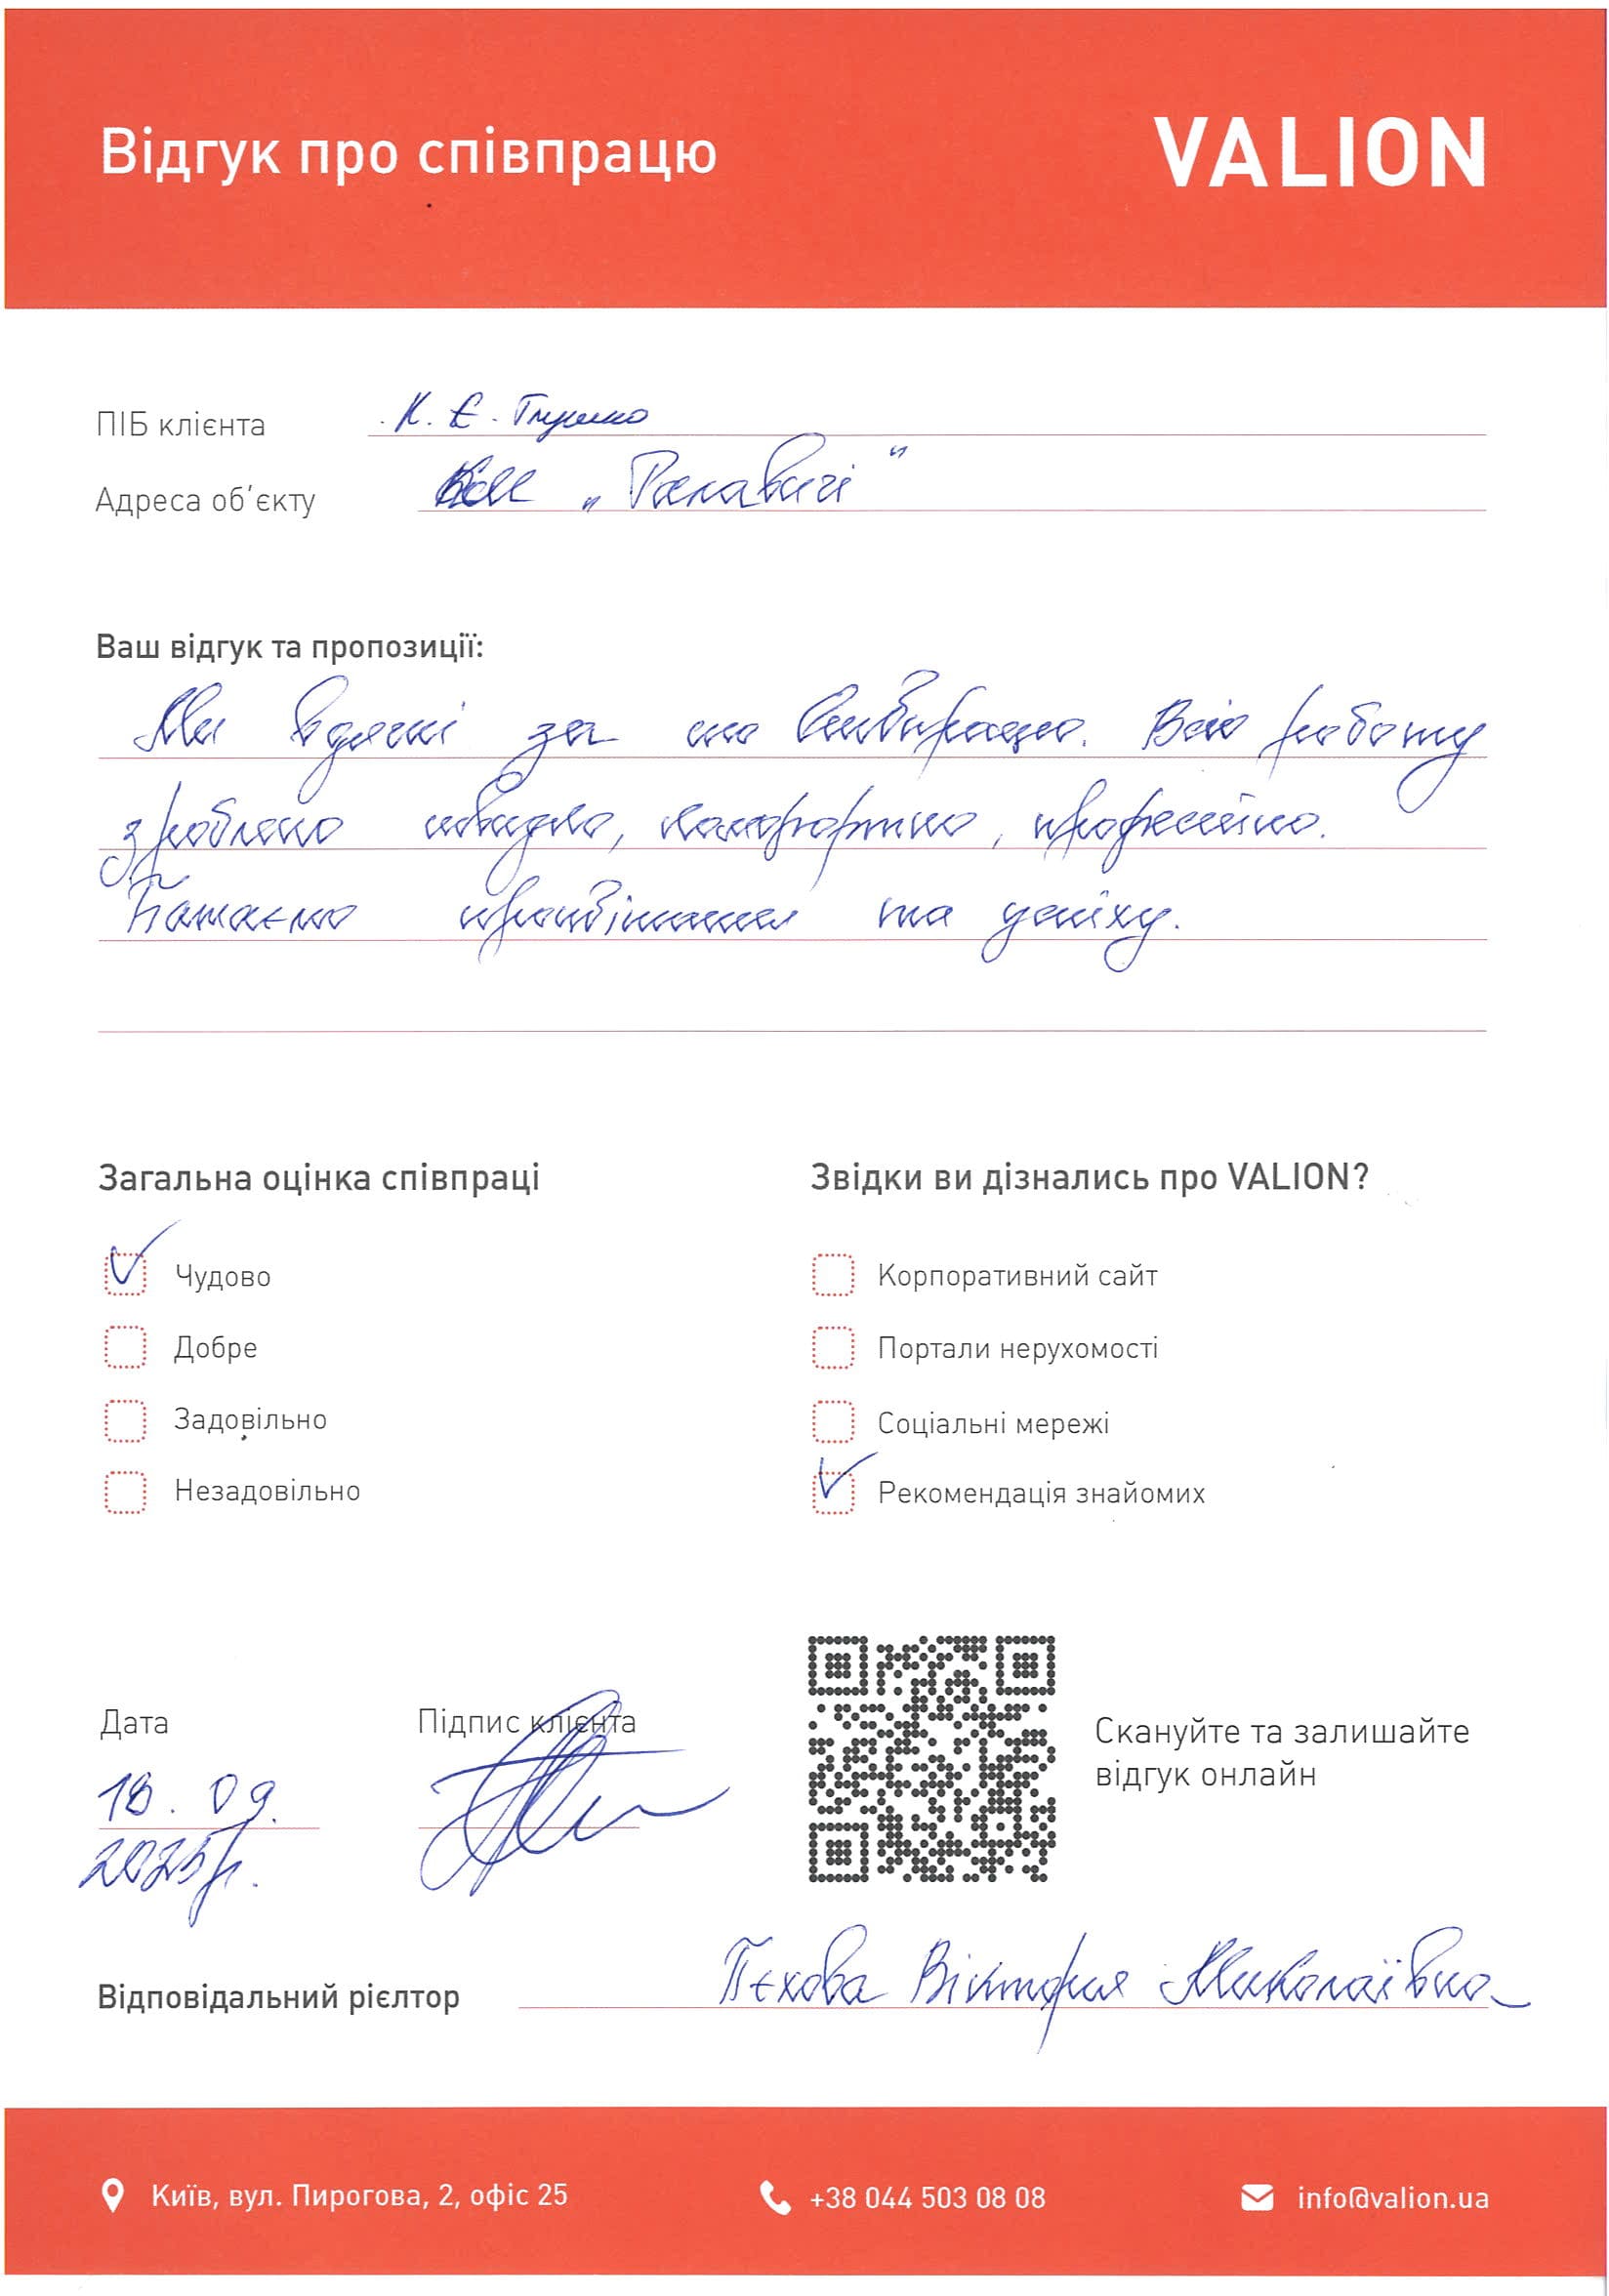 Відгук про співпрацю
VALION
ПІБ клієнта К. Є. Глушко
Адреса об'єкту КМ „Романвичі"
Ваш відгук та пропозиції:
Ми вдячні за співпрацю. Всю роботу
зроблено швидко, комфортно, професійно.
Бажаємо процвітання та успіху.
Загальна оцінка співпраці
Чудово
Добре
Задовільно
Незадовільно
Звідки ви дізнались про VALION?
Корпоративний сайт
Портали нерухомості
Соціальні мережі
Рекомендація знайомих
Дата
18. 09.
2025р.
Підпис клієнта
Скануйте та залишайте
відгук онлайн
Відповідальний рієлтор Пєхова Вікторія Миколаївна
Київ, вул. Пирогова, 2, офіс 25
+38 044 503 08 08
info@valion.ua